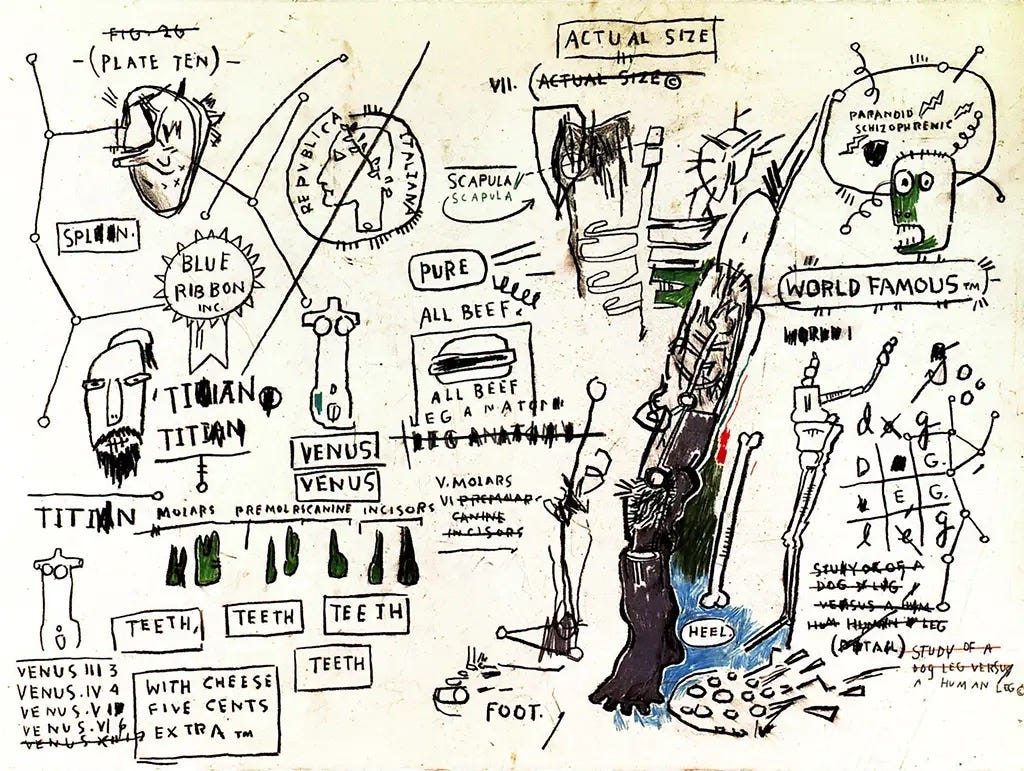 FIG. 26
-(PLATE TEN)-
SPLEEN.
BLUE
RIBBON
INC.
REPVBLICA ITALIANA
TITIAN
TITIAN
TITIAN
VENUS
VENUS
ACTUAL SIZE
VII. (ACTUAL SIZE©
SCAPULA
SCAPULA
PURE
ALL BEEF.
ALL BEEF
LEG ANATOMY
LEG ANATOMY
V. MOLARS
VI PREMOLAR
CANINE
INCISORS
MOLARS PREMOLRS CANINE INCISORS
TEETH,
TEETH
TEETH
TEETH
VENUS III 3
VENUS. IV 4
VENUS. V
VENUS. VI 6
WITH CHEESE
FIVE CENTS
EXTRA TM
FOOT.
HEEL
PARANOID
SCHIZOPHRENIC
WORLD FAMOUS TM
d g
D G.
E G.
l e g
STUDY OF A
DOG LEG
VERSUS A HUM
HUM HUMAN LEG
(DETAIL)
STUDY OF A
DOG LEG VERSUS
A HUMAN LEG©